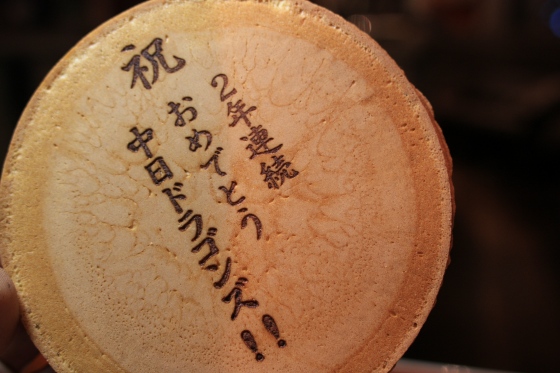 祝
2年連続
おめでとう
中日ドラゴンズ!!